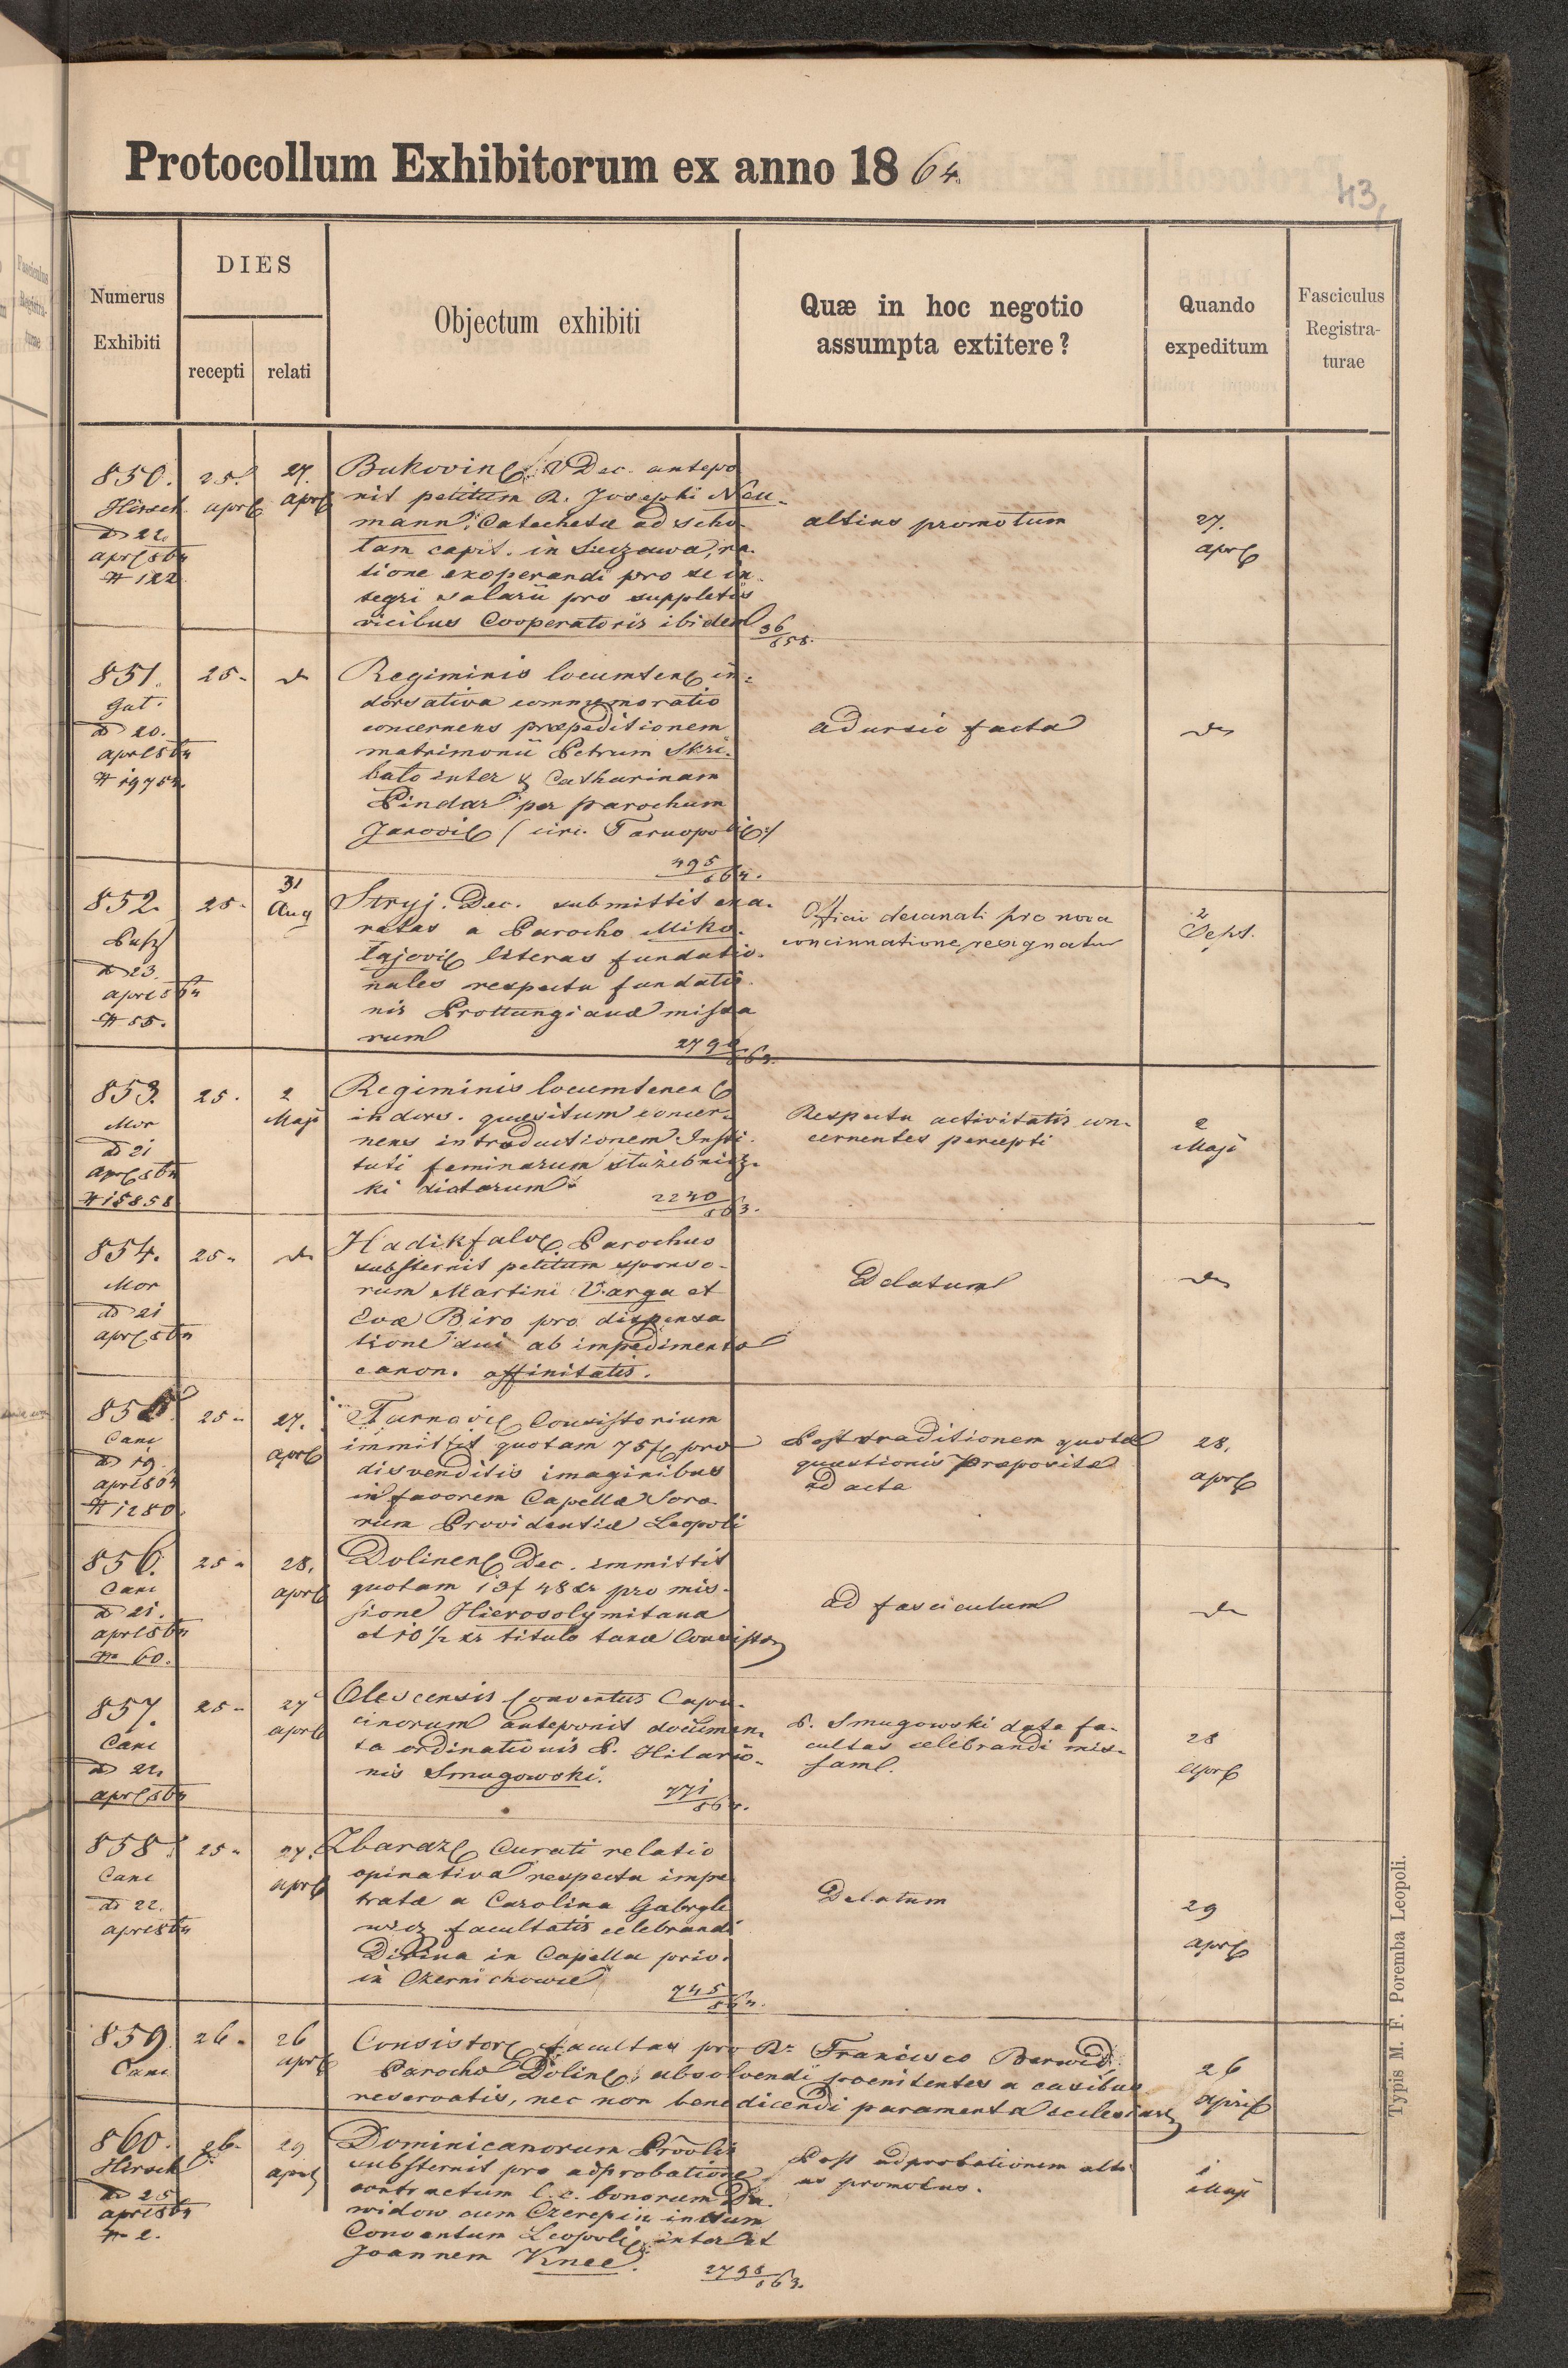 Protocollum Exhibitorum ex anno 1864.
43,
Numerus Exhibiti
DIES
recepti
relati
Objectum exhibiti
Quæ in hoc negotio assumpta extitere?
Quando expeditum
Fasciculus Registraturae
850.
Hirsch
d 22.
apr 864
# 122
25.
apr
27.
apr
Bukovin. V Dec. antepo
nit petitum R. Josephi Neu-
mann, Catechetæ ad scho-
lam capit. in Suczawa, ra-
tione exoperandi pro se in-
tegri salarii pro suppletis
vicibus Cooperatoris ibidem
36/858.
altius promotum
27.
apr
851.
Gut.
d 20.
apr 864
# 19754.
25.
Regiminis locumten in-
dorsativa commemoratio
concernens præpeditionem
matrimonii Petrum Skri-
bato inter & Catharinam
Pindar per parochum
Janovi / circ. Tarnopoli /
495/864.
adursio facta
852.
d 23.
apr 864
# 55.
25.
31
Aug
Stryj. Dec. submittit exa-
ratas a Parocho Miko-
lajovi literas fundatio-
nales respectu fundatio-
nis Prottungianæ missa
rum
Officio decanali pro nova
concinnatione resignatur
2
Sept.
853.
Mor
d 21
apr 864
# 15858
25.
2
Maji
Regiminis locumtenen
indors. quæsitum concer-
nens introductionem Insti-
tuti feminarum służebnicz-
ki dictarum
2240/863.
Respectu activitatis con-
cernentes percepti
2
Maji
854.
Mor
d 21
apr 864
25.
Hadikfalv Parochus
substernit petitum sponso-
rum Martini Varga et
Evæ Biro pro dispensa
tione sui ab impedimento
canon. affinitatis.
Delatum
855.
Canc
d 19.
apr 864
# 1280.
25.
27.
apr
Tarnovi Consistorium
immittit quotam 75 f pro
disvenditis imaginibus
in favorem Capellæ Soro-
rum Providentiæ Leopoli
Post traditionem quotæ
quæstionis Præposita
ad acta
28.
apr
856.
Canc
d 21.
apr 864
60.
25.
28.
apr
Dolinen Dec. immittit
quotam 13 f 48 xr pro mis-
sione Hierosolymitana
et 10 1/2 xr titulo taxæ Consistor
ad fasciculum
857.
Canc
d 22.
apr 864
25.
27
apr
Olescensis Conventus Capu-
cinorum anteponit documen-
ta ordinationis P. Hilario-
nis Smugowski.
771/864.
P. Smugowski data fa-
cultas celebrandi mis-
sam.
28
apr
858.
Canc
d 22.
apr 864
25.
27.
apr
Zbaraz Curati relatio
opinativa respectu impe
tratæ a Carolina Gabryle
wicz facultatis celebrandi
Divina in Capella priv.
in Czernichowce
745/864.
Delatum
29
apr
859.
Canc
26.
26
apr
Consistor facultas pro R. Francisco Berwid
Parocho Dolin, absolvendi poenitentes a casibus
reservatis, nec non benedicendi paramenta ecclesiast
26
april
860.
Hirsch
d 25
apr 864
26.
29
apr
Dominicanorum Provlis
substernit pro adprobatione
contractum l. c. bonorum Da-
widow cum Czerepin initum
Conventum Leopoli inter et
Joannem Knee.
2798/863.
Post adprobationem alti
us promotus.
1
Maji
Typis M. F. Poremba Leopoli.